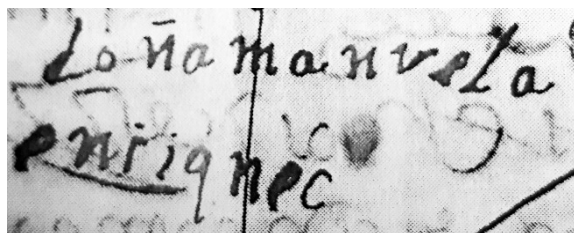 doña manuela
enriquec